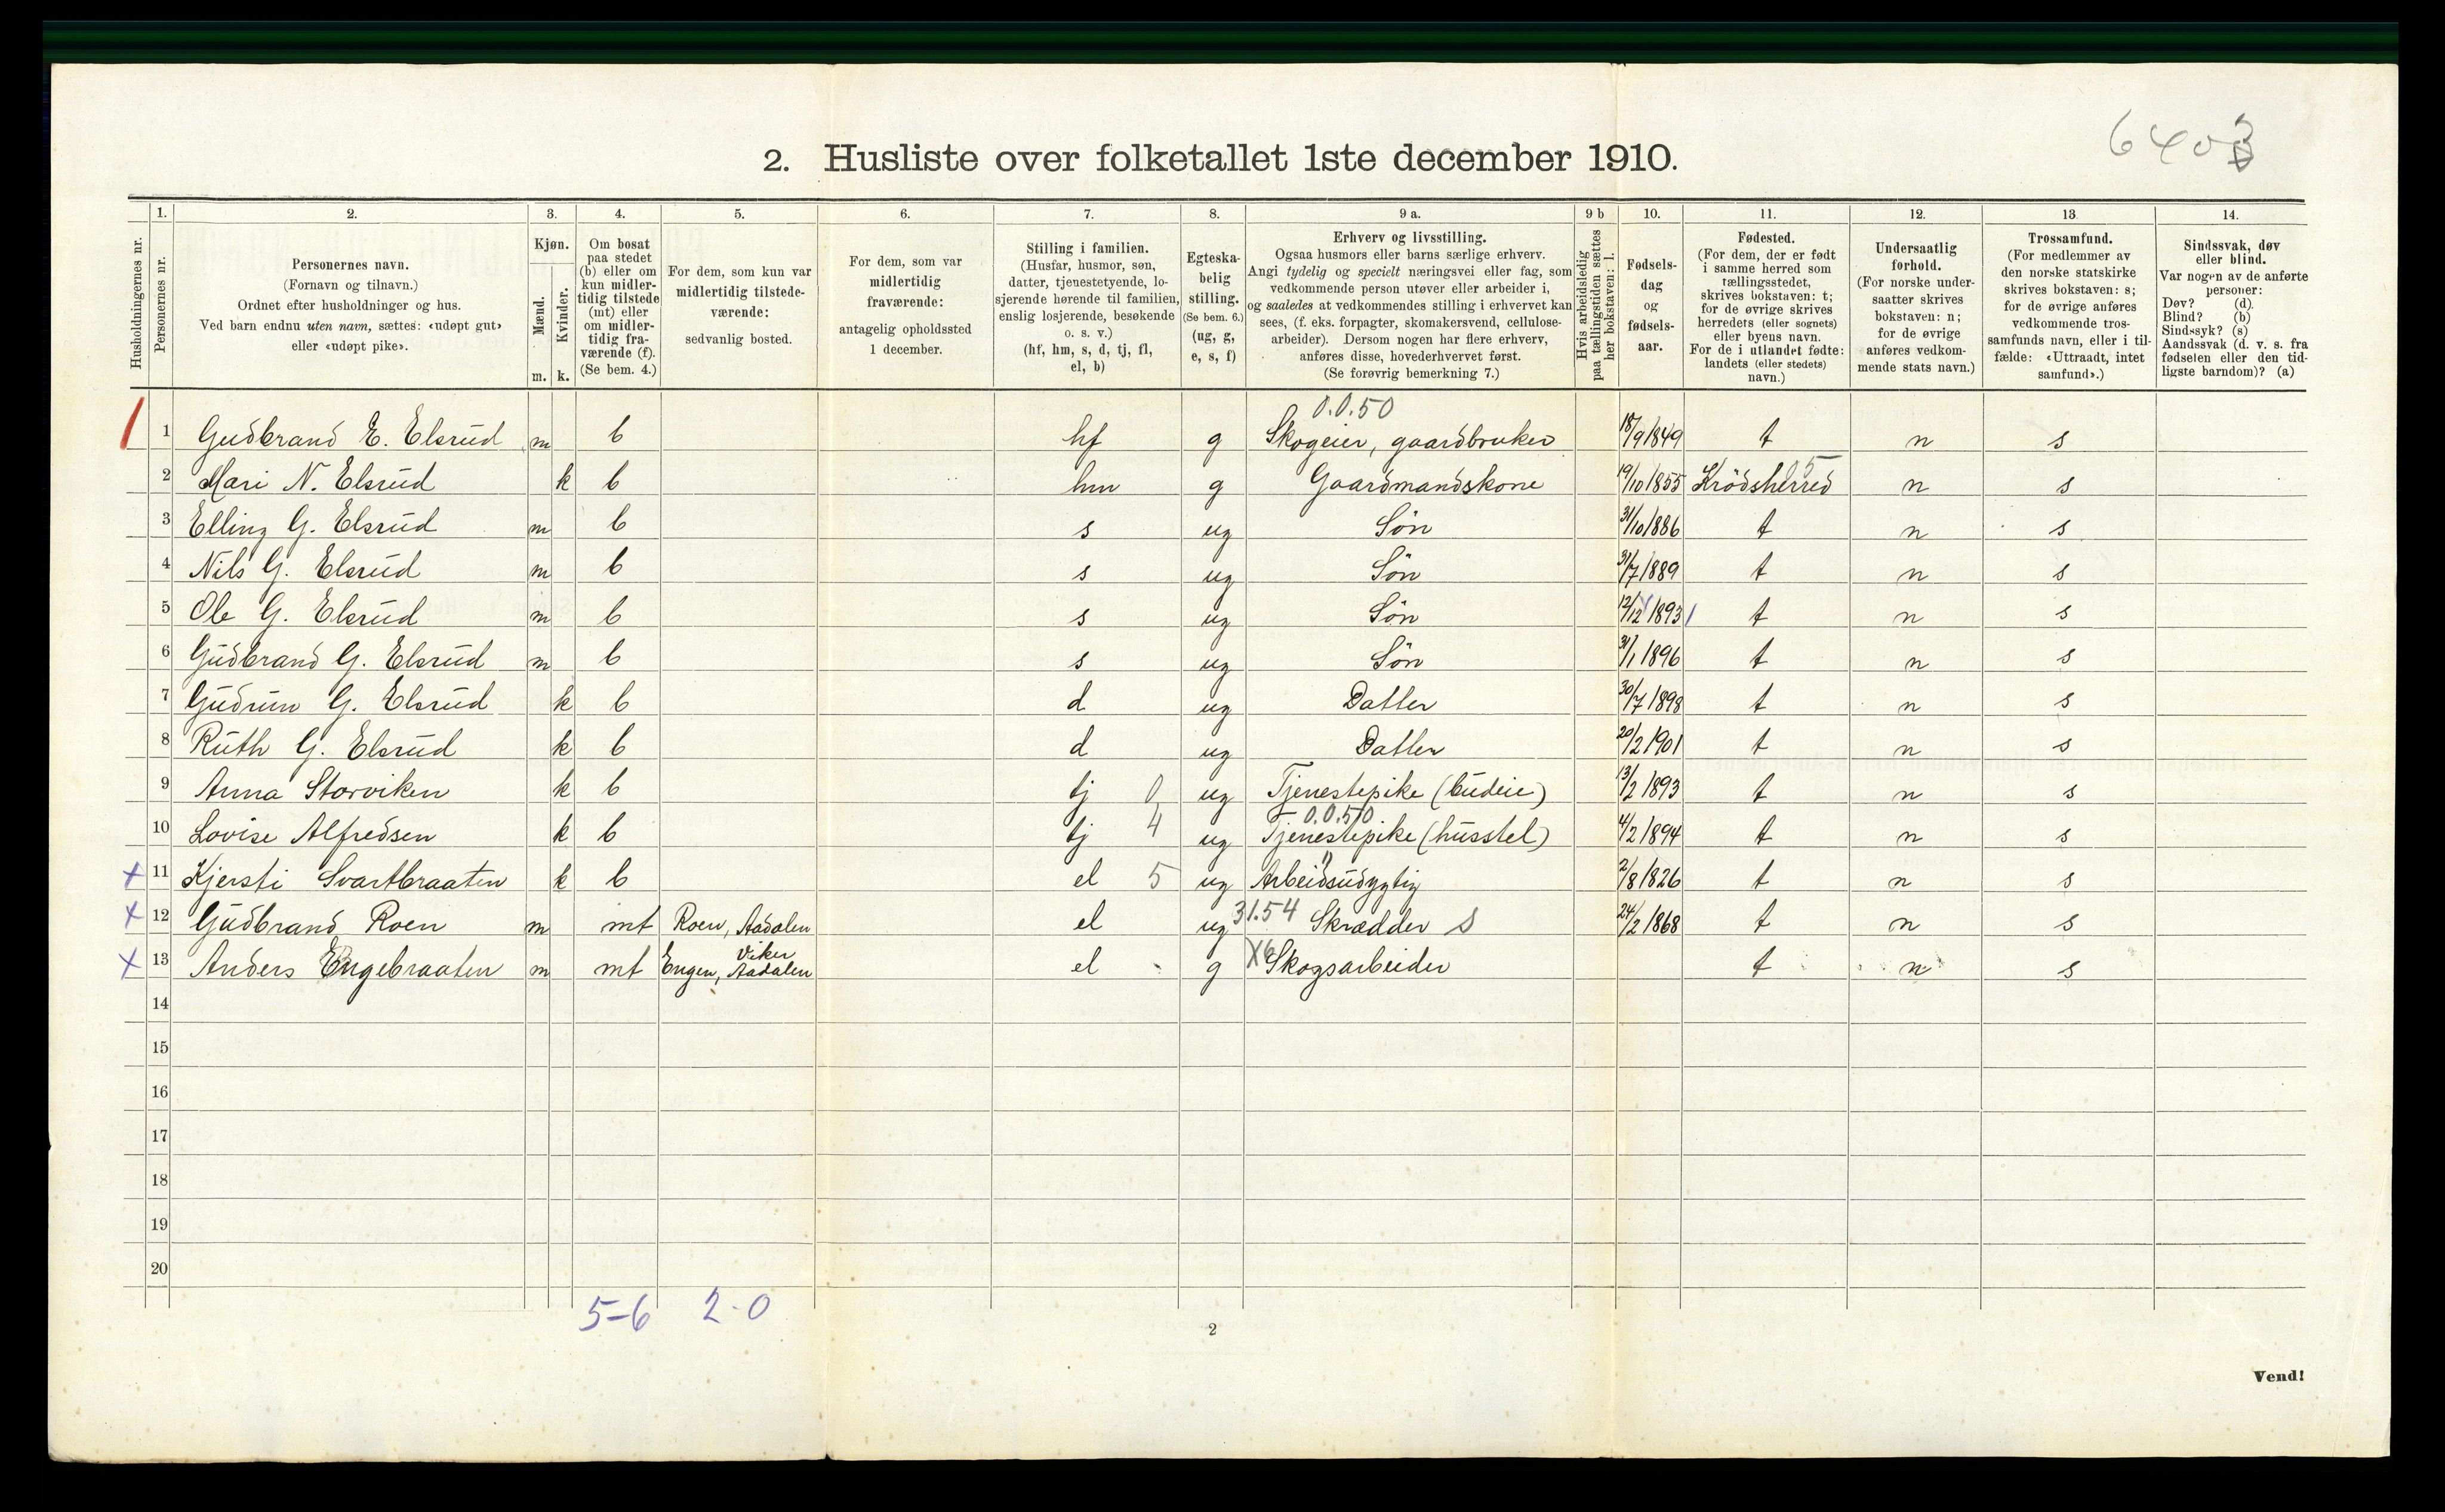 6403
2. Husliste over folketallet 1ste december 1910.
1. 2. 3. 4. 5. 6. 7. 8. 9 a. 9 b 10. 11. 12. 13 14.
Husholdningernes nr.
Personernes nr.
Personernes navn.
(Fornavn og tilnavn.)
Ordnet efter husholdninger og hus.
Ved barn endnu uten navn, sættes: «udøpt gut»
eller «udøpt pike».
Kjøn.
Mænd.
m.
Kvinder.
k.
Om bosat
paa stedet
(b) eller om
kun midler-
tidig tilstede
(mt) eller
om midler-
tidig fra-
værende (f).
(Se bem. 4.)
For dem, som kun var
midlertidig tilstede-
værende:
sedvanlig bosted.
For dem, som var
midlertidig
fraværende:
antagelig opholdssted
1 december.
Stilling i familien.
(Husfar, husmor, søn,
datter, tjenestetyende, lo-
sjerende hørende til familien,
enslig losjerende, besøkende
o. s. v.)
(hf, hm, s, d, tj, fl,
el, b)
Egteska-
belig
stilling.
(Se bem. 6.)
(ug, g,
e, s, f)
Erhverv og livsstilling.
Ogsaa husmors eller barns særlige erhverv.
Angi tydelig og specielt næringsvei eller fag, som
vedkommende person utøver eller arbeider i,
og saaledes at vedkommendes stilling i erhvervet kan
sees, (f. eks. forpagter, skomakersvend, cellulose-
arbeider). Dersom nogen har flere erhverv,
anføres disse, hovederhvervet først.
(Se forøvrig bemerkning 7.)
Hvis arbeidsledig
paa tællingstiden sættes
her bokstaven: l.
Fødsels-
dag
og
fødsels-
aar.
Fødested.
(For dem, der er født
i samme herred som
tællingsstedet,
skrives bokstaven: t;
for de øvrige skrives
herredets (eller sognets)
eller byens navn.
For de i utlandet fødte:
landets (eller stedets)
navn.)
Undersaatlig
forhold.
(For norske under-
saatter skrives
bokstaven: n;
for de øvrige
anføres vedkom-
mende stats navn.)
Trossamfund.
(For medlemmer av
den norske statskirke
skrives bokstaven: s;
for de øvrige anføres
vedkommende tros-
samfunds navn, eller i til-
fælde: «Uttraadt, intet
samfund».)
Sindssvak, døv
eller blind.
Var nogen av de anførte
personer:
Døv? (d)
Blind? (b)
Sindssyk? (s)
Aandssvak (d. v. s. fra
fødselen eller den tid-
ligste barndom)? (a)
0.0.50
1 Gudbrand E. Elsrud m b hf g Skogeier, gaardbruker 18/9 1849 t n s
5
2 Mari N. Elsrud k b hm g Gaardmandskone 19/10 1855 Krödsherred n s
3 Elling G. Elsrud m b s ug Sön 31/10 1886 t n s
4 Nils G. Elsrud m b s ug Sön 31/7 1889 t n s
5 Ole G. Elsrud m b s ug Sön 12/12 1893 t n s
6 Gudbrand G. Elsrud m b s ug Sön 31/1 1896 t n s
7 Gudrun G. Elsrud k b d ug Datter 30/7 1898 t n s
8 Ruth G. Elsrud k b d ug Datter 20/2 1901 t n s
9 Anna Storviken k b tj 0 ug Tjenestepike (budeie) 13/2 1893 t n s
0.0.50
10 Lovise Alfredsen k b tj 4 ug Tjenestepike (husstel) 4/2 1894 t n s
+ 11 Kjersti Svartbraaten k b el 5 ug Arbeidsudygtig 2/8 1826 t n s
+ 12 Gudbrand Roen m mt Roen, Aadalen el ug 31.54 Skrædder s 24/2 1868 t n s
Viker
+ 13 Anders Engebraaten m mt Engen, Aadalen el g X6 Skogsarbeider t n s
14
15
16
17
18
19
20
5-6 2-0
2
Vend!